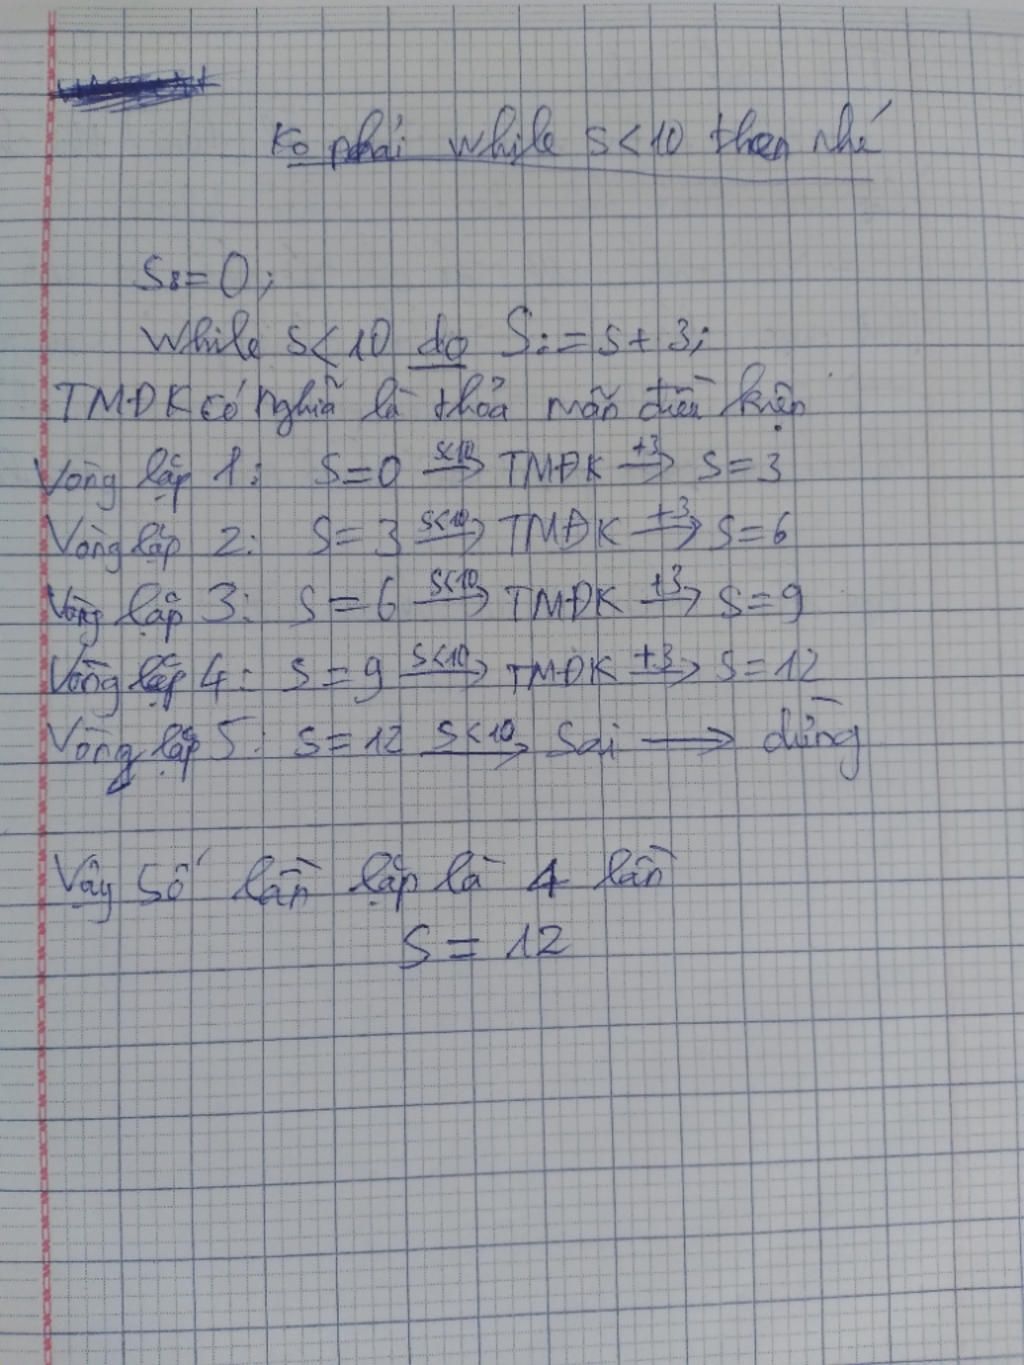 Ko phải while s<10 then nhé
S:=0;
While s<10 do S:=s+3;
TMĐK có nghĩa là thỏa mãn điều kiện
Vòng lặp 1: S=0 s<10→ TMĐK +3→ S=3
Vòng lặp 2: S=3 s<10→ TMĐK +3→ S=6
Vòng lặp 3: S=6 s<10→ TMĐK +3→ S=9
Vòng lặp 4: S=9 s<10→ TMĐK +3→ S=12
Vòng lặp 5: S=12 S<10→ Sai → dừng
Vây Số lần lặp là 4 lần
S = 12